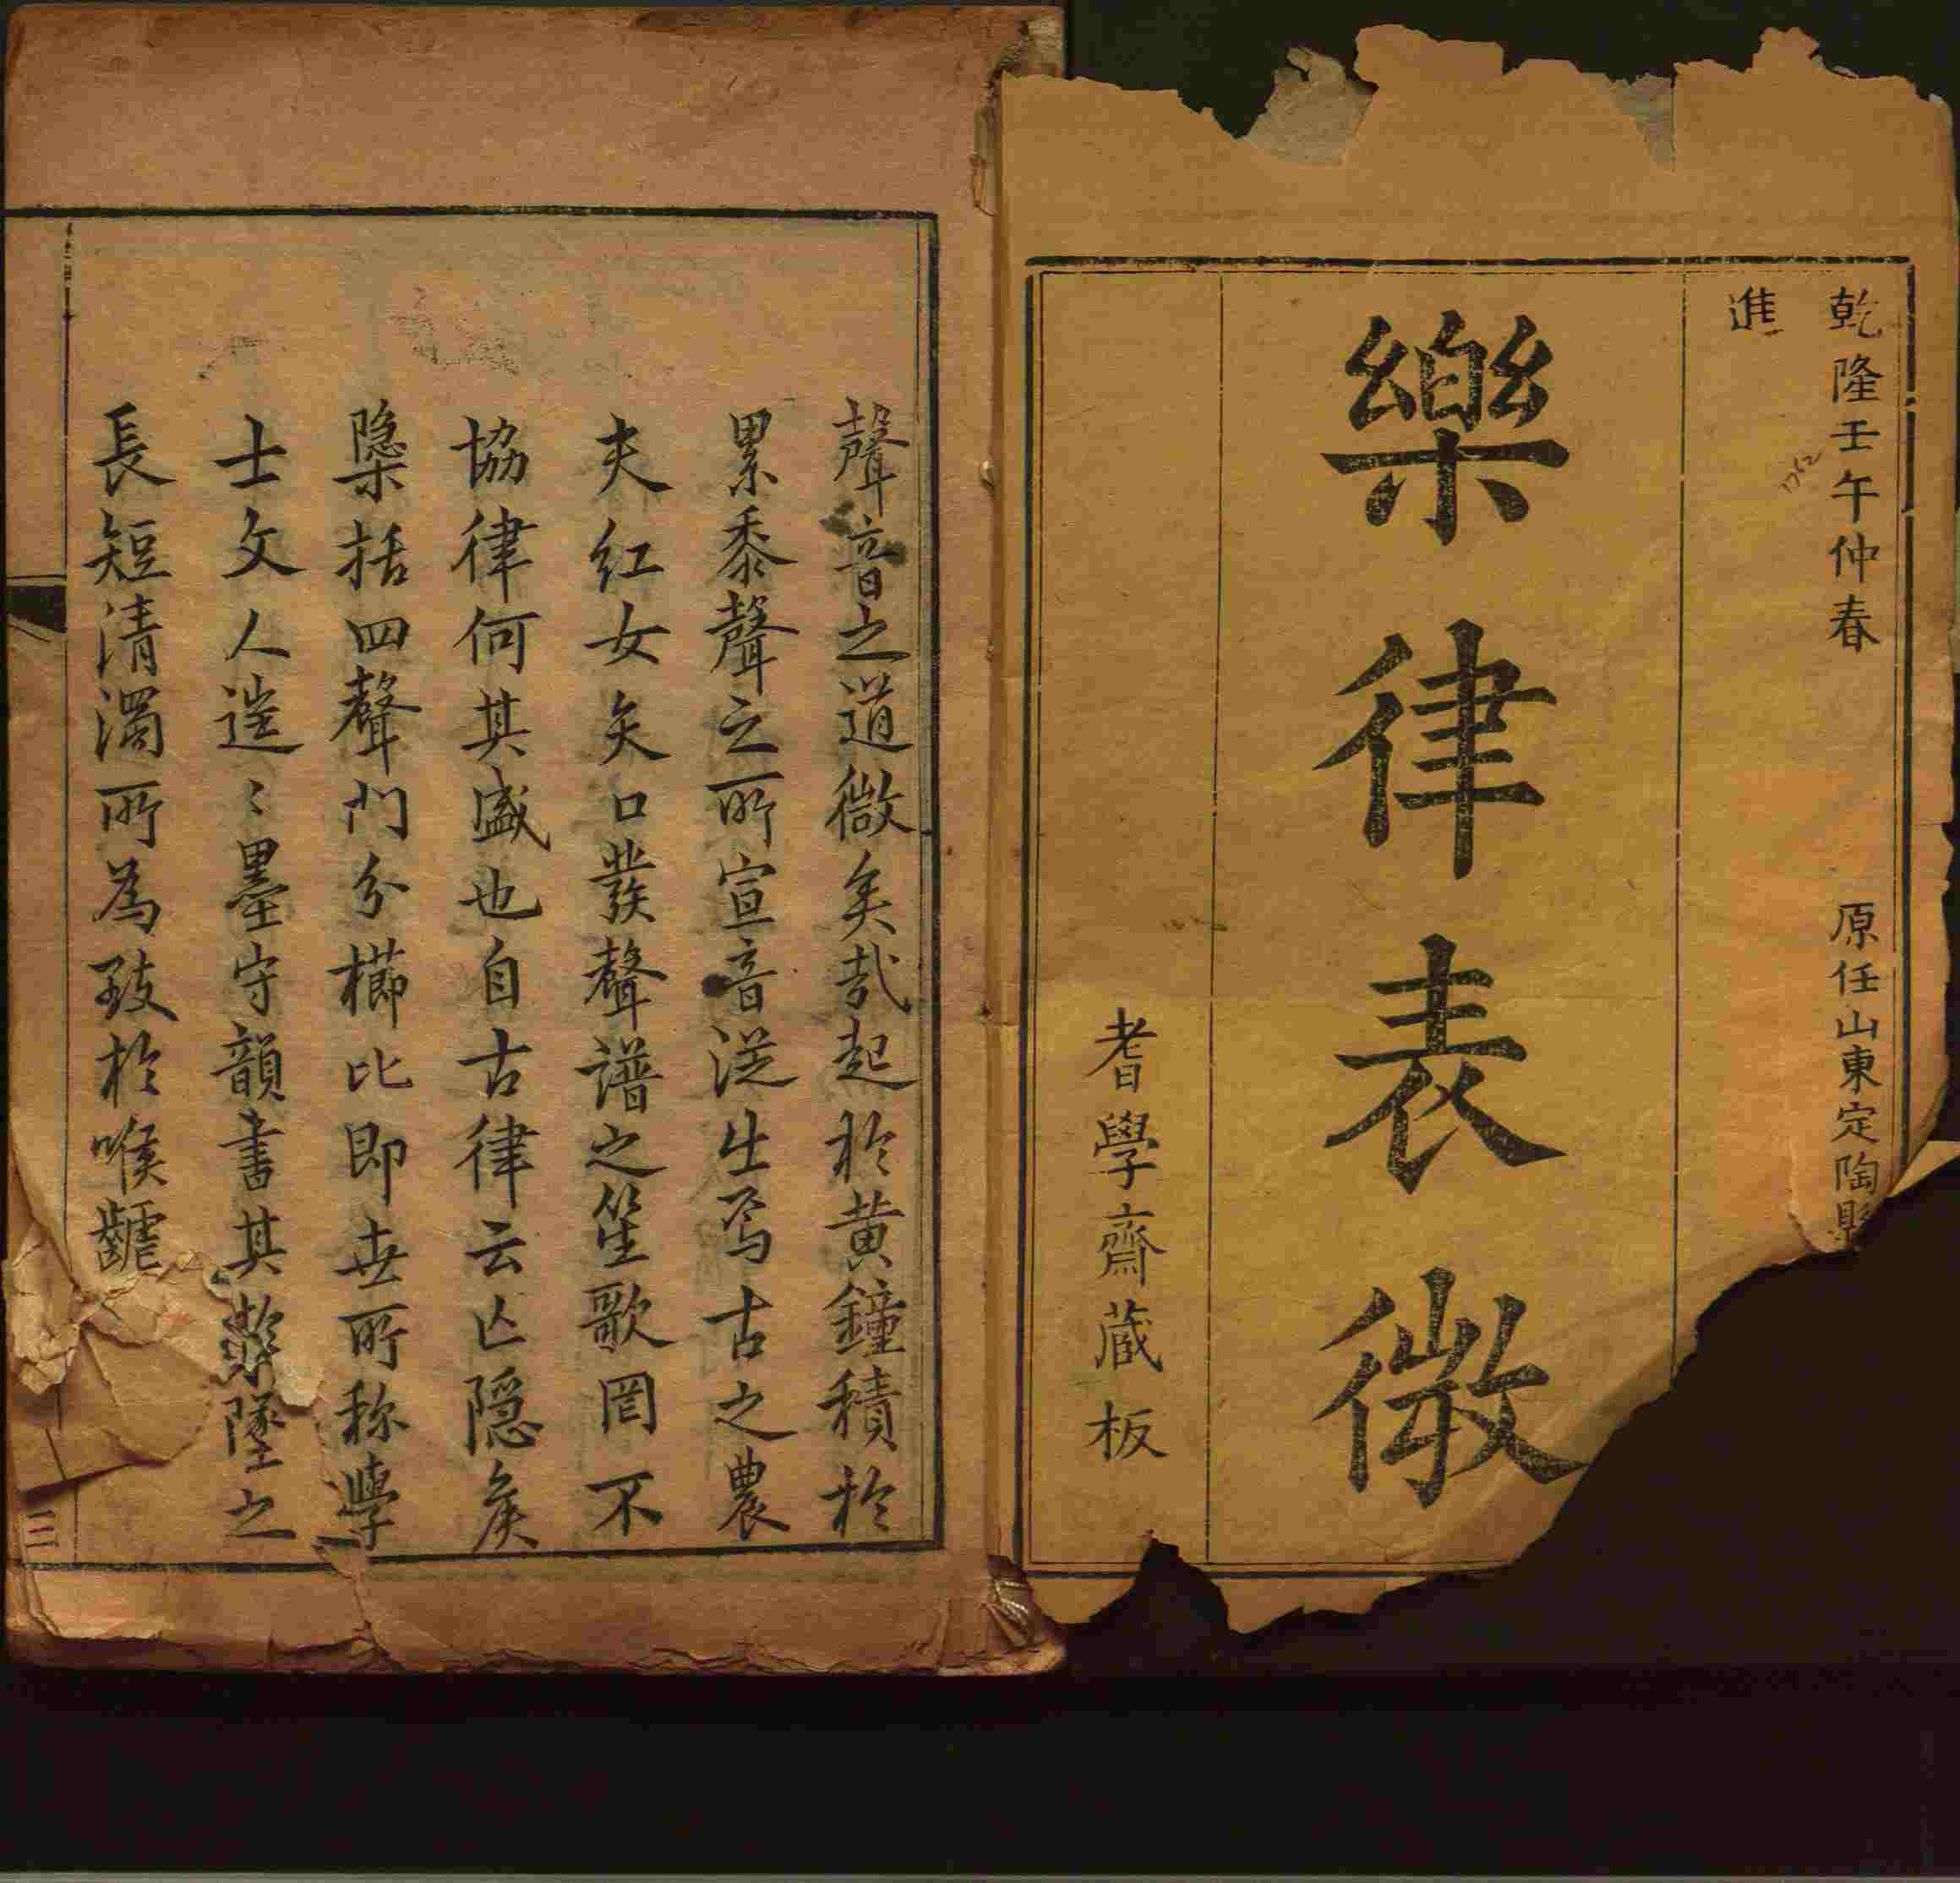 乾隆壬午仲春 原任山東定陶縣
進
1762
樂律表微
耆學齋藏板
聲音之道微矣哉起於黃鐘積於
累黍聲之所宣音從生焉古之農
夫紅女矢口發聲譜之笙歌罔不
協律何其盛也自古律云亡隱矦
檃括四聲門分櫛比即世所稱學
士文人遙〻墨守韻書其獘墜之
長短清濁所為致於喉齶
三